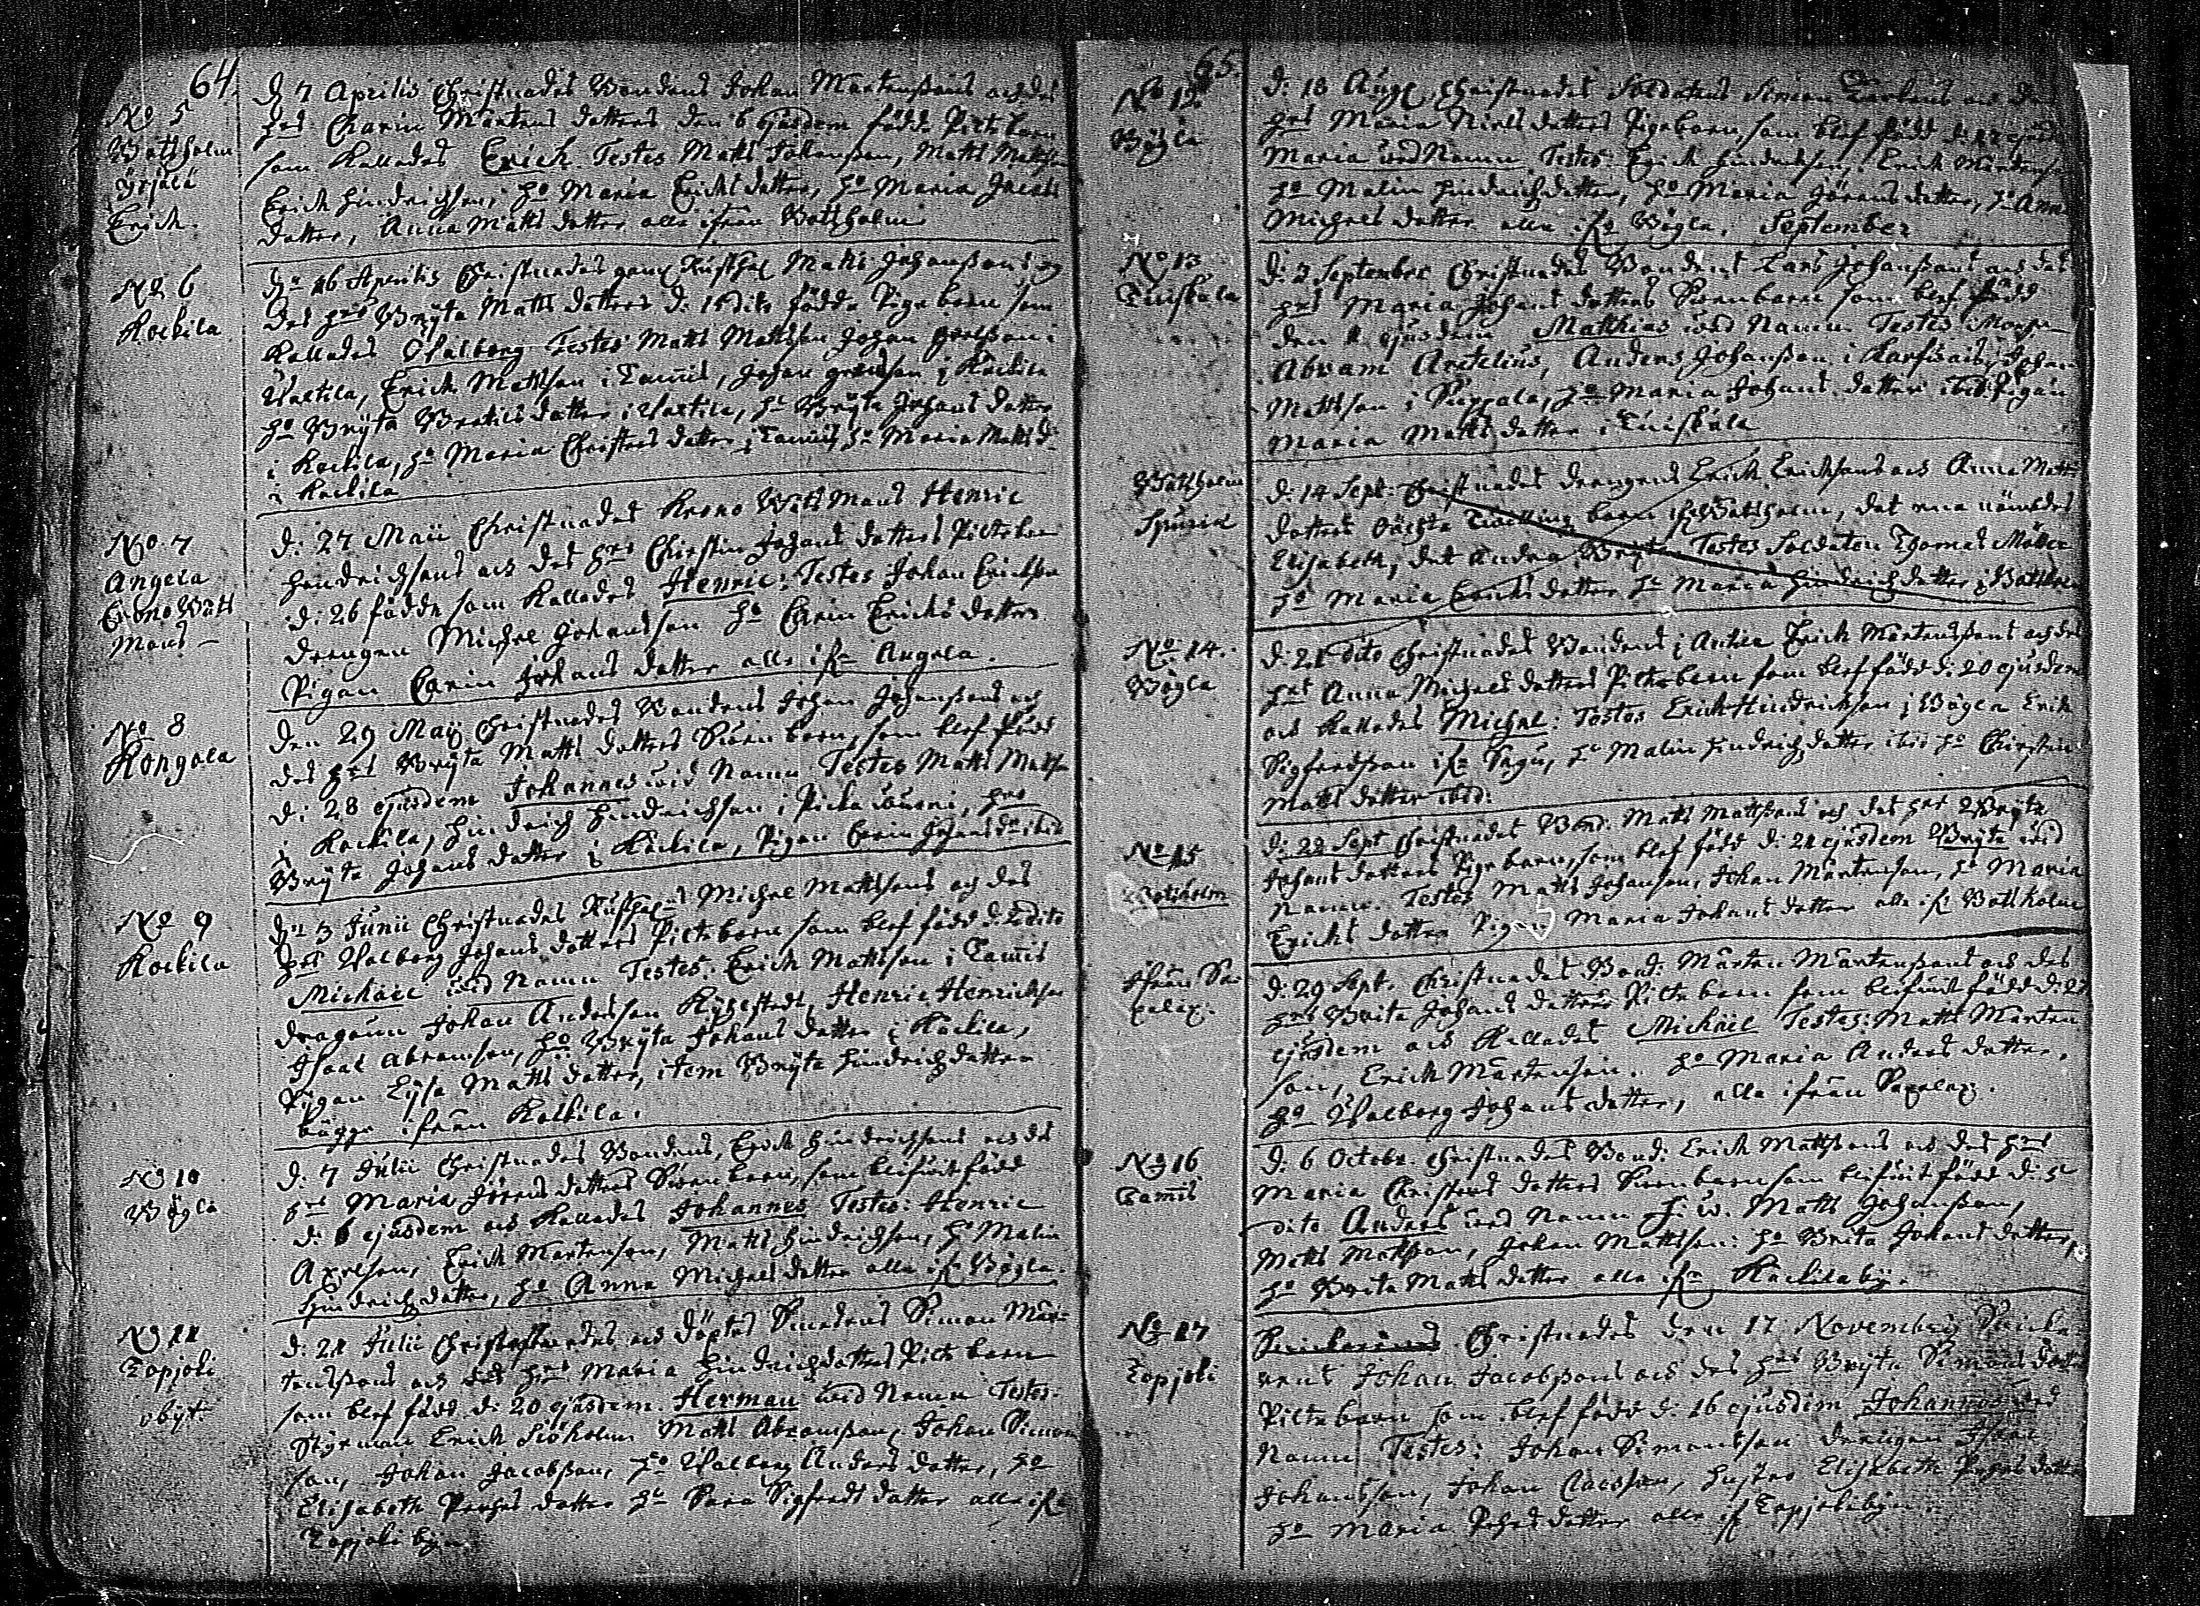 64.
No 5
Båtsholm
Erich.
D. 7 Aprilis Christnades Bondens Johan Mårtenssons och des
hrs Charin Mårtens dotters den 6 ejusdem födde Piltebarn
som kallades Erich Testes Matts Johansson, Matts Mattss
Erich Hindrichsson, ho Maria Erichsdotter, ho Maria Jacobs
dotter, Anna Matts dotter alla ifrån Båtsholm
No 6
Kockila
Dn 16 Aprilis Christnades Rusth. Matts Johanssons och
des hrs Brÿta Matts dotters d. 15 dito födde Pigebarn som
kallades Walborg Testes Matts Mattsson Johan
Erich Mattsson i Tamis, Johan i Kockila
ho Brÿta dotter, ho Brÿta Johans dotter
i Kockila, ho Maria Christers dotter i Tamis ho Maria Matts d.
i Kockila
No 7
Angela
Crono Båts
Mans
D. 27 Maii Christnades Krono Båts Mans Henric
Hendrichsons och des hrs Chirstin Johans dotters Piltebarn
d. 26 födde som kallades Henric: Testes Johan Ericksson
drengen Michel Johansson ho Carin Erichs dotter
Pigan Carin Johans dotter alla if. Angela.
No 8
Kongola
Den 29 Maij Christnades Bondens Johan Johanssons och
des hrs Brÿta Matts dotters Swenbarn, som blef född
d: 28 ejusdem Johannes wid Namn Testes Matts Matss
i Kockila, Hindrich Hindrichsson i, hro
Brÿta Johans dotter i Kockila, Pigan Carin Johans d.
No 9
Kockila
Dn 3 Junii Christnades Rusth. Michel Mattssons och des
hrs Walborg Johans dotters Piltebarn som blef född d. 2 dito
Michael wid Namn Testes: Erich Mattsson i Tamis
dragoun Johan Andersson, Henric Henricksson
Isaac Abramsson, ho Brÿta Johans dotter i Kockila,
Pigan Lisa Matts dotter, item Brÿta Hindrichdotter
bägge ifrån Kockila.
No 10
Bögla
D. 7 Julii Christnades Bondens, Erich Hindrichssons och des
hrs Maria Jörens dotters Swenbarn, som blifwit född
d: 6 ejusdem och kallades Johannes Testes: Henric
Axelsson, Erich Mårtensson, Matts Hindrichsson, ho Malin
Hindrichsdotter, ho Anna Michels dotter alla if. Bögla.
No 11
Topjoki
obijt.
D. 21 Julii Christnades och döptes Simon Mår-
tenssons och des hrs Maria Hindrichdotters Piltebarn
som blef född d. 20 ejusdem. Herman wid Namn Testes:
Styrman Erich Siöholm Matts Abramsson, Johan Simons
son, Johan Jacobsson, ho Walborg Anders dotter, ho
Elisabeth dotter ho Sara Sigfreds dotter alla if.
Topjoki by.
65.
No 12.
Bögla
D. 18 Aug. Christnades Soldatens Simon och des
hrs Maria Niels dotters Pigebarn, som blef född d. 17 ejusd
Maria wid Namn Testes: Erich Hindrichson, Erich Mårtensson
ho Malin Hindrichdotter, ho Maria Jörens dotter, ho Anna
Michels dotter alla if. Bögla. September
No 13
Tuiskula
D. 2 September Christnades Bondens Lars Johanssons och des
hrs Maria Johans dotters Swenbarn som blef född
den ejusdem Matthias wid Namn Testes
Abram Anders Johansson i, Johan
Mattsson i, ho Maria Johans dotter ibid. Pigan
Maria Matts dotter i Tuiskula
Båtsholm
Spuria
D. 14 Sept. Christnades drengens Erich Erichssons och Anna Matts
dotters oächta Twilling barn if. Båtsholm, det ena nämdes
Elisabeth, det andra Brÿta Testes Soldaten Thomas Möller
ho Maria Erichs dotter ho Maria Hindrich dotter i Båtsholm
No. 14.
Bögla
D. 21 dito Christnades Bondens i Erich Mårtenssons och des
hrs Anna Michels dotters Piltebarn som blef född d. 20 ejusdem
och kallades Michel: Testes Erich Hindrichsson i Bögla Erich
Sigfredsson if., ho Malin Hindrichdotter ibid ho Chirstin
Matts dotter ibid.
No 15
Båtsholm
D. 22 Sept Christnades Bond. Matts Mattssons och des hrs Brÿta
Johans dotters Pigebarn, som blef född d. 21 ejusdem Brÿta wid
Namn. Testes Matts Johansson, Johan Mårtensson, ho Maria
Erichs dotter Pigan Maria Johans dotter alla if. Båtsholm
Ifrån Sa-
xalax.
D. 29 Sept. Christnades Bond: Mårten Mårtenssons och des
hrs Brita Johans dotters Piltebarn som blifwit född d:
ejusdem och kallades Michäel Testes: Matts Mårten
son, Erich Mårtensson. ho Maria Anders dotter.
ho Walborg Johans dotter, alla ifrån Saxalax.
No 16
Tamis
D. 6 Octobr. Christnades Bond: Erich Mattssons och des hrs
Maria Christers dotters Swenbarn som blifwit född d: 5
dito Anders wid Namn F. w. Matts Johansson,
Matts Matsson, Johan Mattsson: ho Brita Johans dotter,
ho Brita Matts dotter alla if. Kockila by.
No 17
Topjoki
Christnades den 17 Novembris
Johan Jacobssons och des hrs Brÿta Simons dot
Piltebarn som blef född d. 16 ejusdem Johannes wid
Namn Testes: Johan Simonsson drengen Isaac
Johansson, Johan Claesson, hustro Elisabeth dotter
ho Maria dotter alla if. Topjokiby.